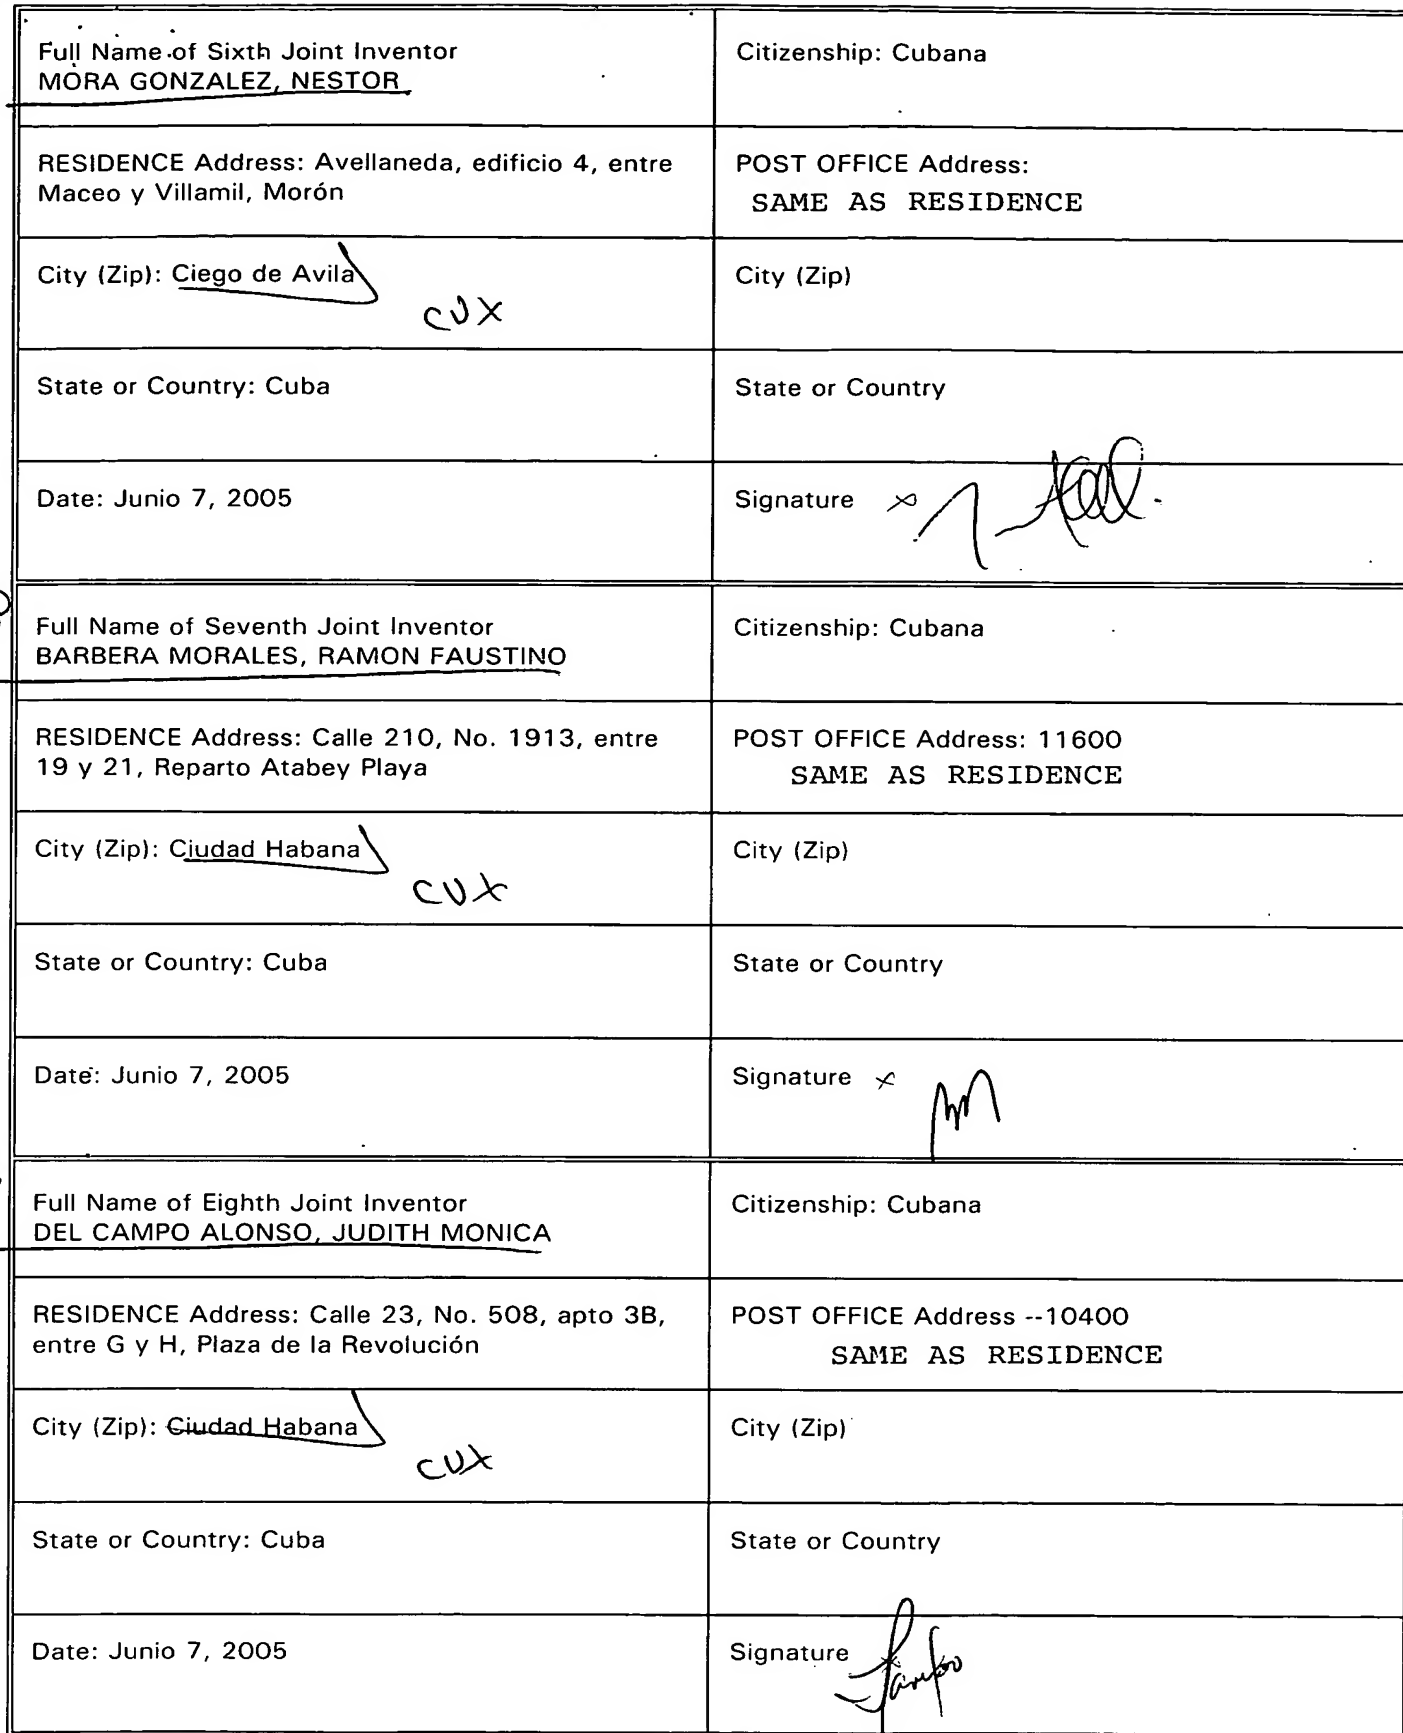 Full Name of Sixth Joint Inventor
MORA GONZALEZ, NESTOR
Citizenship: Cubana
RESIDENCE Address: Avellaneda, edificio 4, entre
Maceo y Villamil, Morón
POST OFFICE Address:
SAME AS RESIDENCE
City (Zip): Ciego de Avila
CUX
City (Zip)
State or Country: Cuba
State or Country
Date: Junio 7, 2005
Signature x
Full Name of Seventh Joint Inventor
BARBERA MORALES, RAMON FAUSTINO
Citizenship: Cubana
RESIDENCE Address: Calle 210, No. 1913, entre
19 y 21, Reparto Atabey Playa
POST OFFICE Address: 11600
SAME AS RESIDENCE
City (Zip): Ciudad Habana
CUX
City (Zip)
State or Country: Cuba
State or Country
Date: Junio 7, 2005
Signature x
Full Name of Eighth Joint Inventor
DEL CAMPO ALONSO, JUDITH MONICA
Citizenship: Cubana
RESIDENCE Address: Calle 23, No. 508, apto 3B,
entre G y H, Plaza de la Revolución
POST OFFICE Address --10400
SAME AS RESIDENCE
City (Zip): Ciudad Habana
CUX
City (Zip)
State or Country: Cuba
State or Country
Date: Junio 7, 2005
Signature